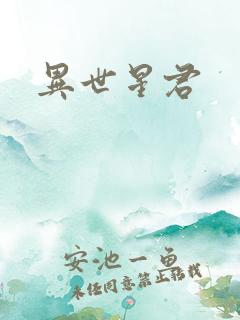 異世星君
安池一鱼
未经同意禁止转载